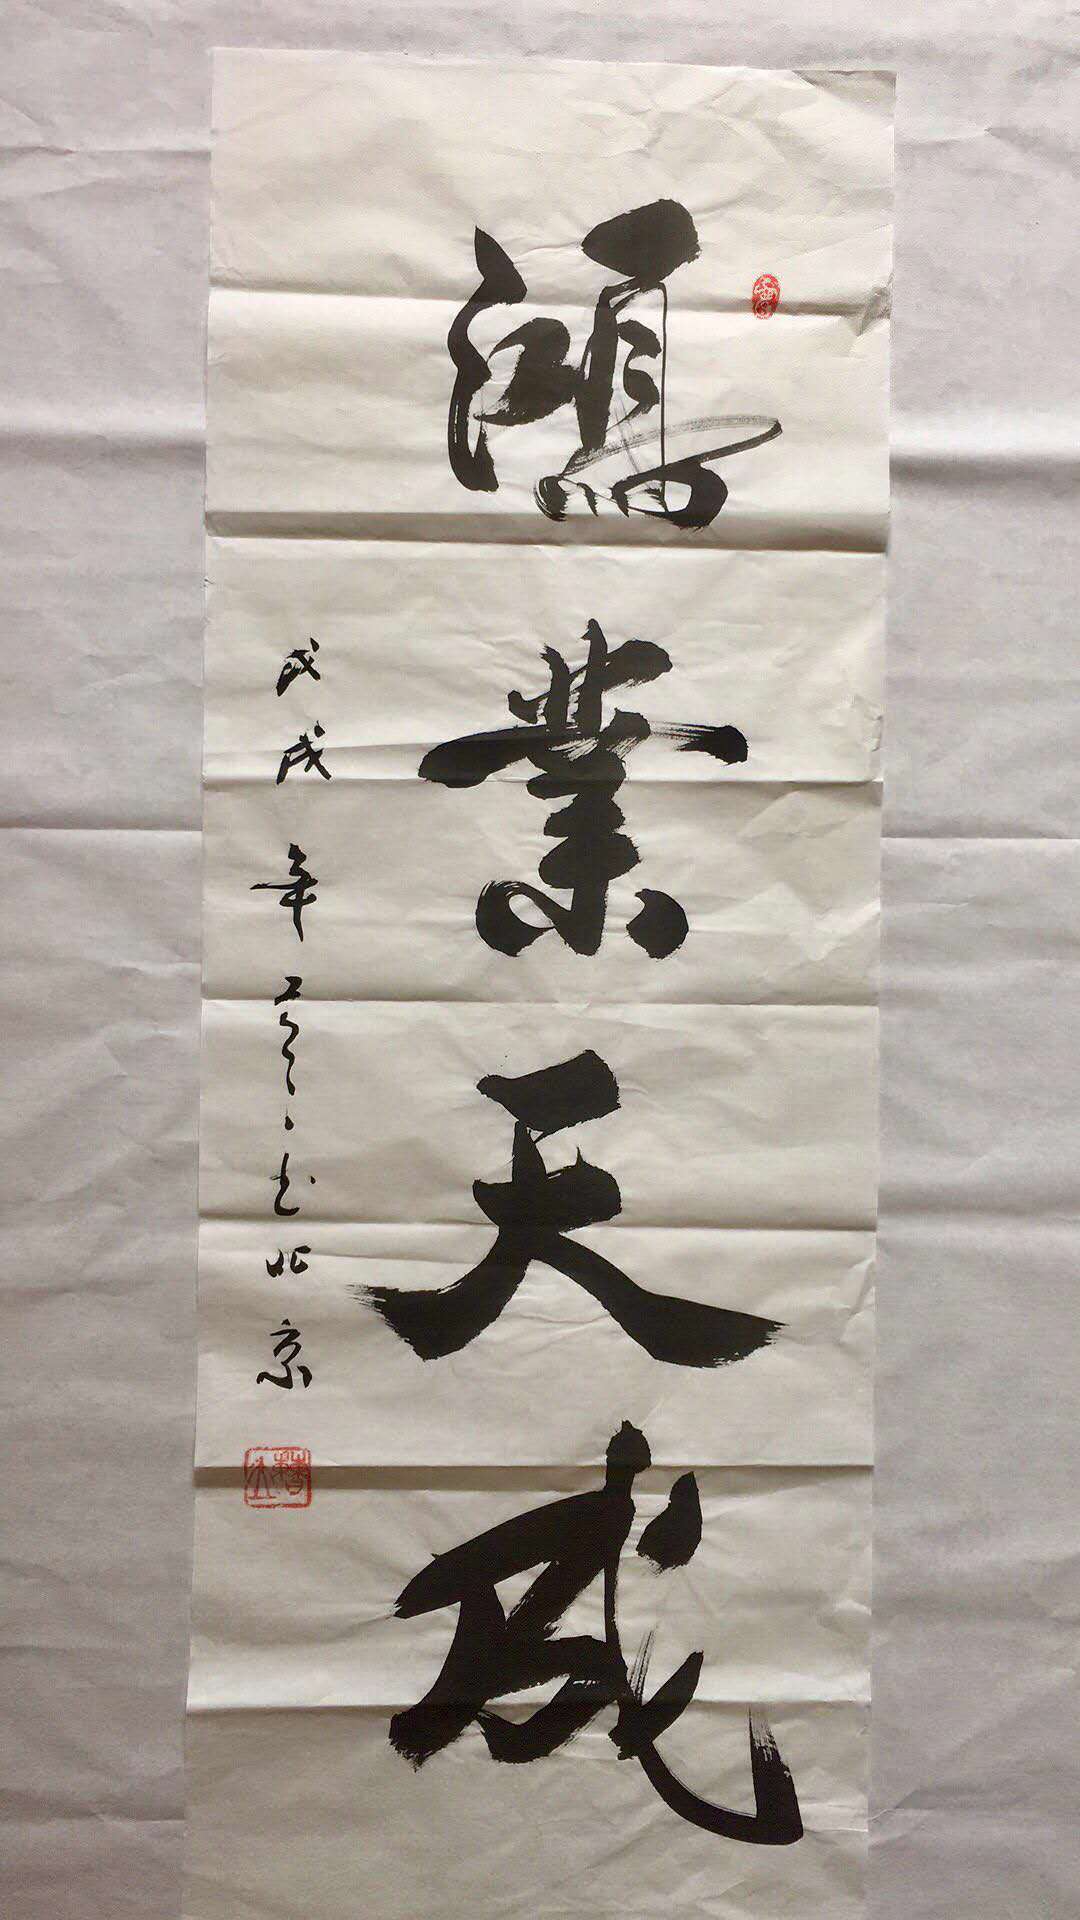 鴻業天成
戊戌年 书北京